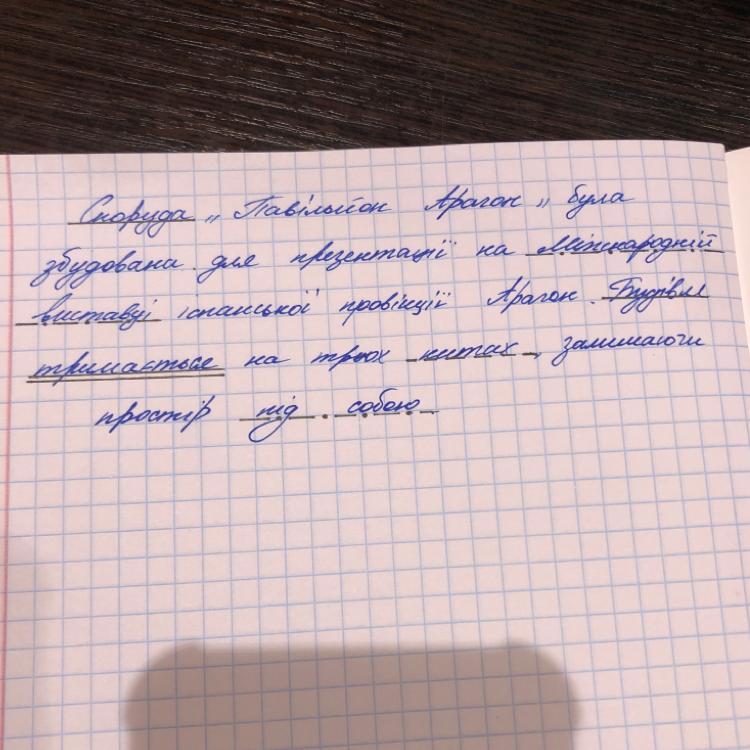 Споруда „Павільйон Арагон„ була
збудована для презентації на Міжнародній
виставці іспанської провінції Арагон. Будівля
тримається на трьох китах, залишаючи
простір під собою